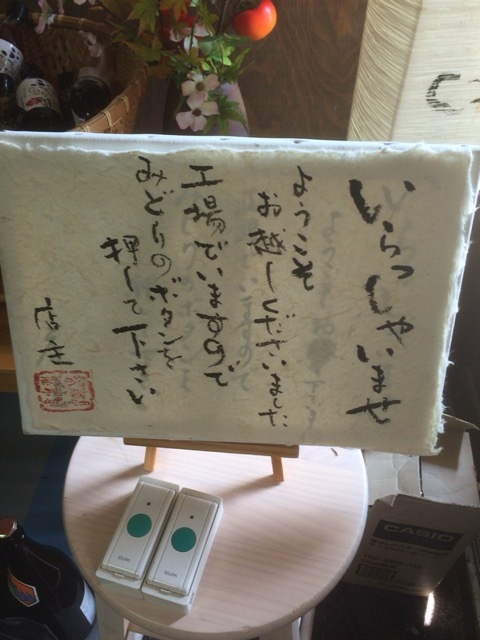 いらっしゃいませ
ようこそ
お越しくださいました
工場でいますので
みどりのボタンを
押して下さい
店主
CASIO
ELPA
ELPA